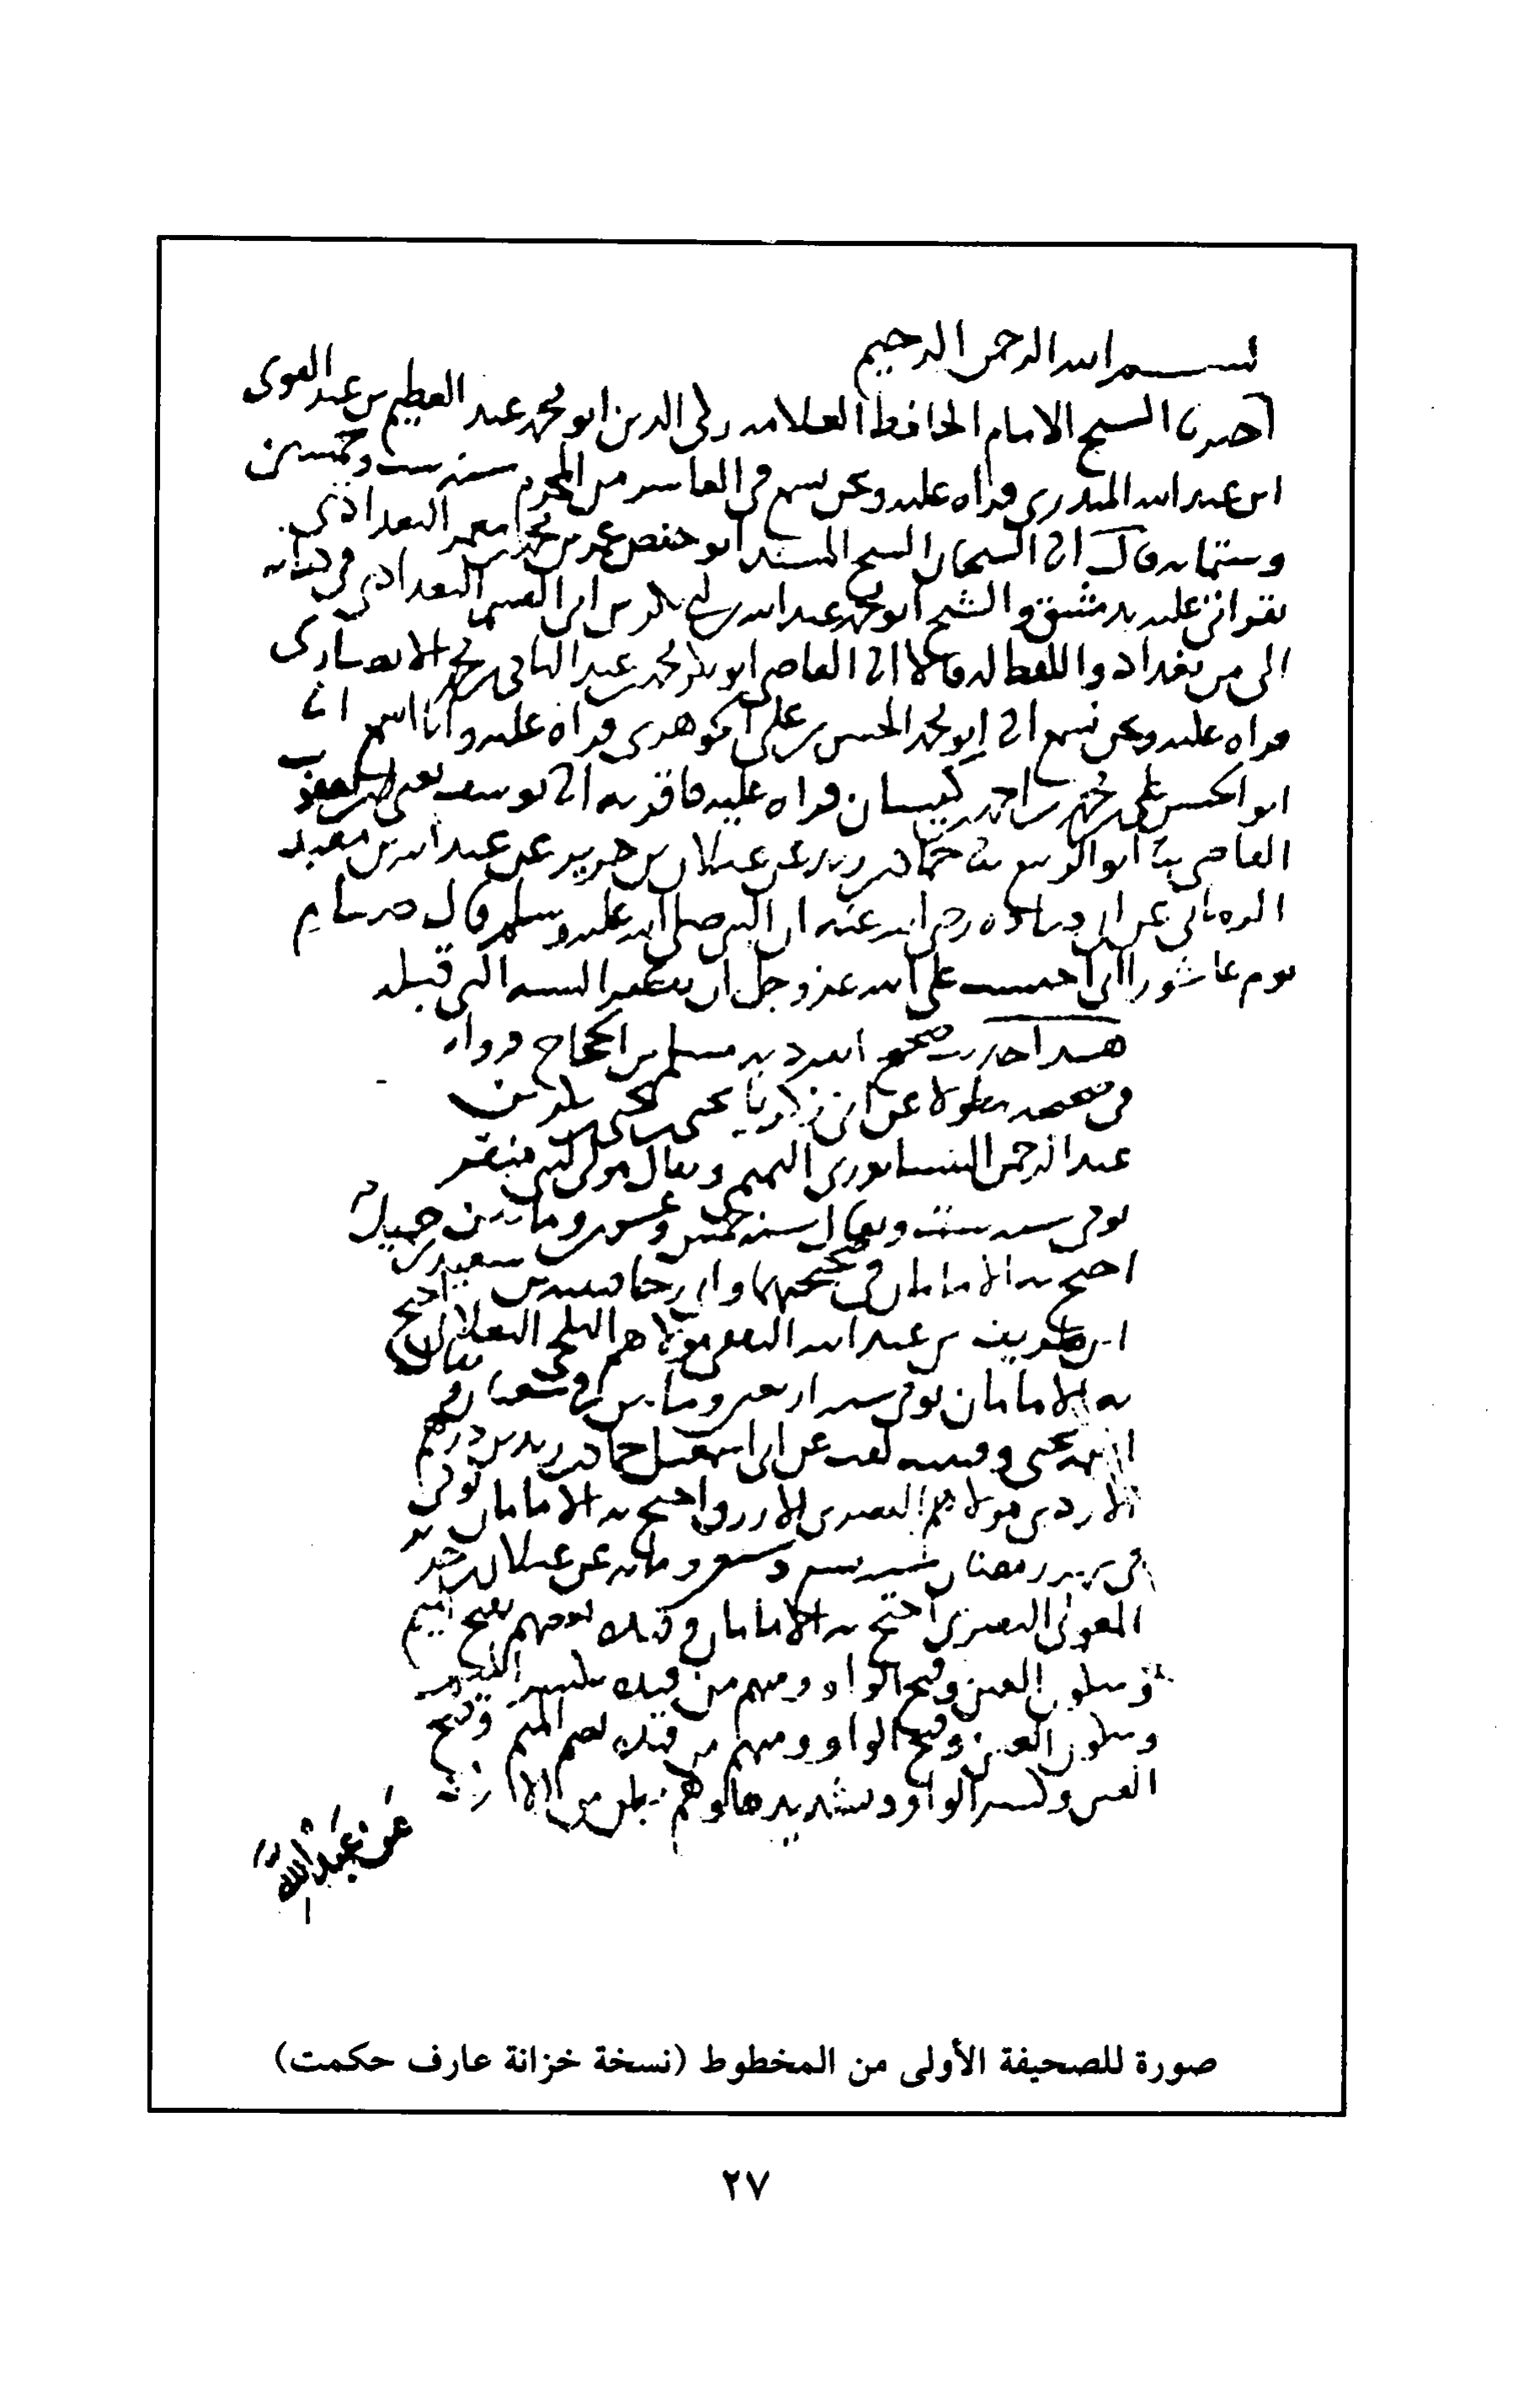 بسم الله الرحمن الرحيم
اخبرنا الشيخ الامام الحافظ العلامه زكي الدين ابو محمد عبد العظيم بن عبد القوي
ابن عبد الله المنذري قراه عليه ونحن نسمع في العاشر من المحرم سنه ست وخمسين
وستمايه قال انا الشيخان الشيخ المسند ابو حفص عمر بن محمد بن معمر البغدادي
بقراتي عليه بدمشق والشيخ ابو محمد عبد الله بن ابي بكر بن ابي القسم البغدادي في كتابه
الي من بغداد واللفظ له قالا انا القاضي ابو بكر محمد بن عبد الباقي بن محمد الانصاري
قراه عليه ونحن نسمع انا ابو محمد الحسن بن علي الجوهري قراه عليه وانا اسمع انا
ابو الحسن علي بن محمد بن احمد بن كيسان قراه عليه فاقر به انا يوسف يعني ابن يعقوب
القاضي ثنا ابو الربيع ثنا حماد بن زيد عن غيلان بن جرير عن عبد الله بن معبد
الزماني عن ابي قتاده رضي الله عنه ان النبي صلى الله عليه وسلم قال صيام
يوم عاشورا اني احتسب على الله عز وجل ان يكفر السنه التي قبله
هذا حديث صحيح انفرد به مسلم بن الحجاج فرواه
في صحيحه مطولا عن ابي زكريا يحيى بن يحيى بن بكر بن
عبد الرحمن النيسابوري التميمي ويقال مولى لبني منقر
توفي سنه ست ويقال سنه خمس وعشرين ومايتين
احتج به الامامان في صحيحيهما وابي رجا قتيبه بن سعيد بن جميل
ابن طريف بن عبد الله الثقفي مولاهم البلخي البغلاني احتج
به الامامان توفي سنه اربعين ومايتين في شعبان
يحيى وقتيبه لقب عن ابي اسمعيل حماد بن زيد بن درهم
الازدي مولاهم البصري الازرق احتج به الامامان توفي
في رمضان سنه تسع وسبعين ومايه عن غيلان بن جرير
المعولي البصري احتج به الامامان وقيده بعضهم بفتح الميم
وسكون العين وفتح الواو ومنهم من قيده بكسر الميم
وسكون العين وفتح الواو ومنهم من قيده بضم الميم وفتح
العين وكسر الواو وتشديدها وهم بطن من الازد
عن عبد الله
صورة للصحيفة الأولى من المخطوط (نسخة خزانة عارف حكمت)
٢٧